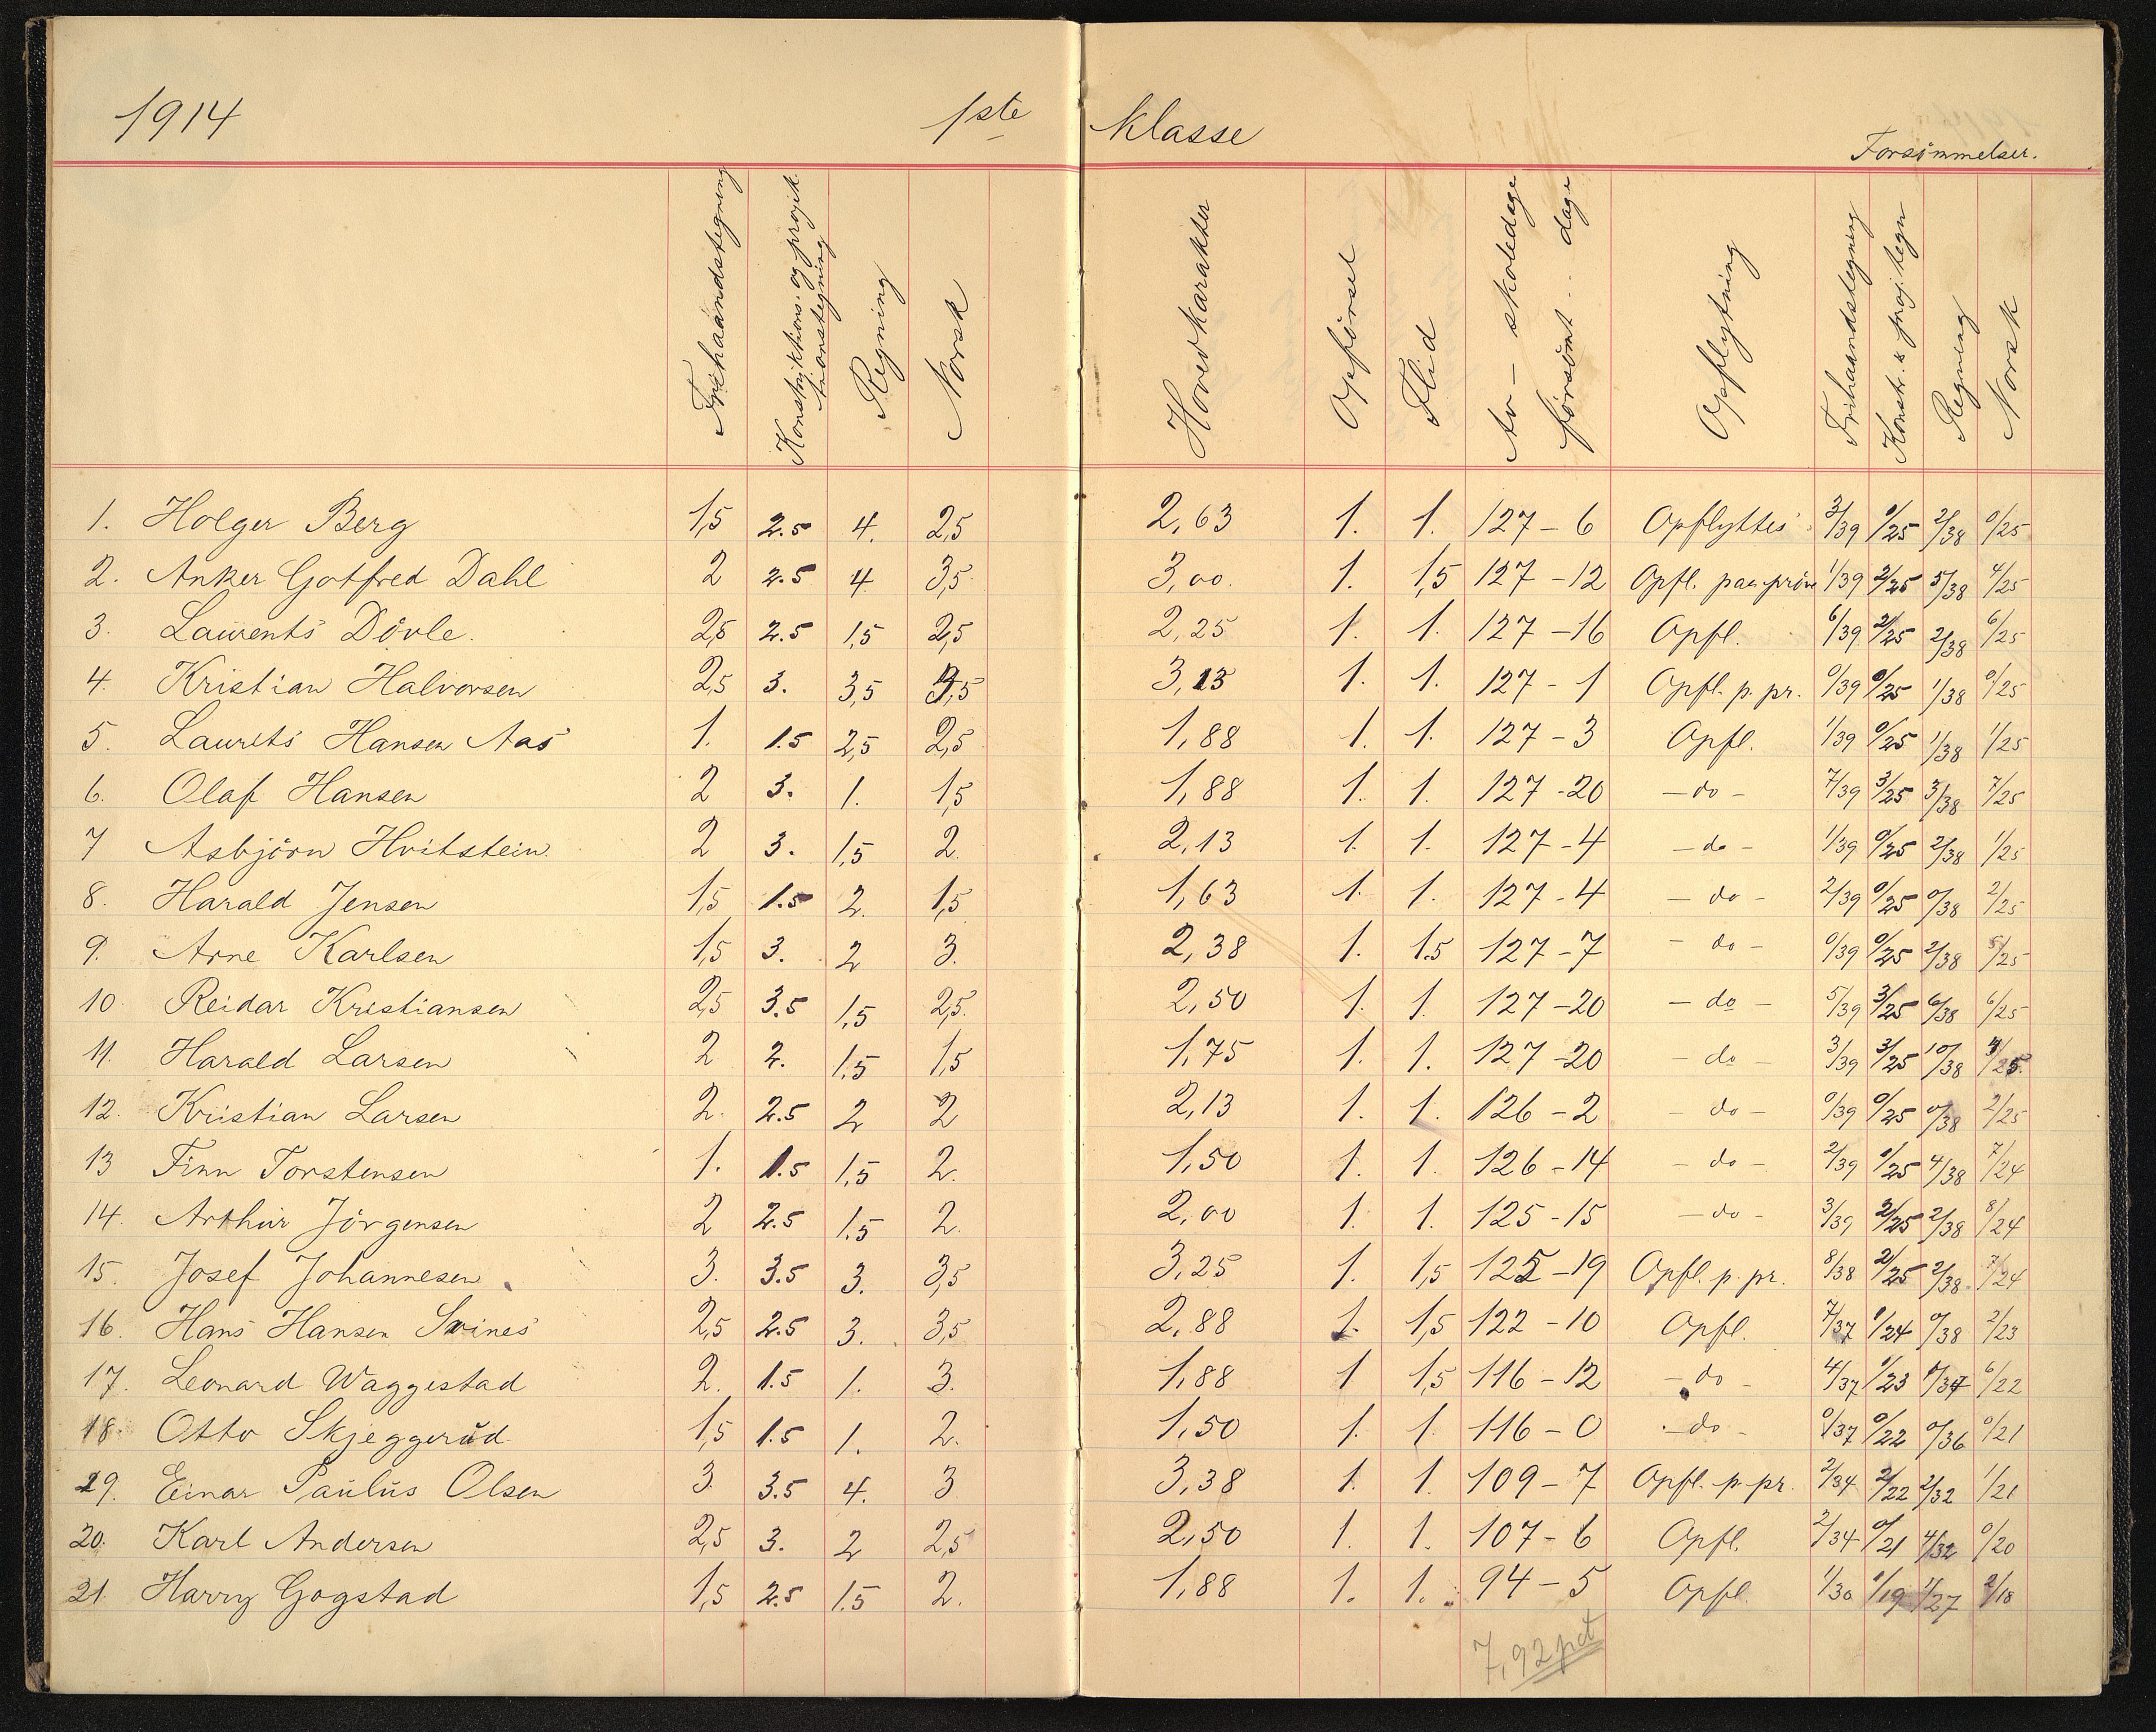 1914 1ste klasse
Forsömmelser.
Frihaandstegning
Konstruktions- og projek-
tionstegning
Regning
Norsk
Hovedkarakter
Opförsel
Flid
Av – skoledage
forsömt .. dage
Opflytning
Frihaandstegning
Konstr. & proj. tegn
Regning
Norsk
1. Holger Berg 1,5 2.5 4. 2,5 2,63 1. 1. 127 – 6 Opflyttes 3/39 0/25 2/38 0/25
2. Anker Gotfred Dahl 2 2.5 4 3,5 3,00. 1. 1,5 127 – 12 Opfl. paa pröve 1/39 2/25 5/38 4/25
3. Laurents Dövle. 2,5 2.5 1,5 2,5 2,25 1. 1. 127 – 16 Opfl. 6/39 2/25 2/38 6/25
4. Kristian Halvorsen 2,5 3. 3,5 3,5 3,13 1. 1. 127 – 1 Opfl. p. pr. 0/39 0/25 1/38 0/25
5. Laurits Hansen Aas 1. 1.5 2,5 2,5 1,88 1. 1. 127 – 3 Opfl. 1/39 0/25 1/38 1/25
6. Olaf Hansen 2 3. 1. 1,5 1,88 1. 1. 127 – 20 – do – 7/39 3/25 3/38 7/25
7 Asbjörn Hvitstein. 2 3. 1,5 2. 2,13 1. 1. 127 – 4 – do – 1/39 0/25 2/38 1/25
8. Harald Jensen 1,5 1.5 2. 1,5 1,63 1. 1. 127 – 4 – do – 2/39 0/25 0/38 2/25
9. Arne Karlsen 1,5 3. 2 3. 2,38 1. 1.5 127 – 7 – do – 0/39 0/25 2/38 5/25
10. Reidar Kristiansen 2,5 3.5 1,5 2,5. 2,50 1. 1. 127 – 20 – do – 5/39 3/25 6/38 6/25
11. Harald Larsen 2 2. 1.5 1,5 1,75 1. 1. 127 – 20 – do – 3/39 3/25 10/38 4/25
12. Kristian Larsen 2. 2.5 2 2 2,13 1. 1. 126 – 2 – do – 0/39 0/25 0/38 2/25
13 Finn Torstensen 1. 1.5 1,5 2. 1,50 1. 1. 126 – 14 – do – 2/39 1/25 4/38 7/24
14. Arthur Jörgensen 2 2.5 1.5 2. 2,00 1. 1. 125 – 15 – do – 3/39 2/25 2/38 8/24
15. Josef Johannesen. 3. 3.5 3. 3,5 3,25 1. 1,5 125 – 19 Opfl. p. pr. 8/38 2/25 2/38 7/24
16. Hans Hansen Svines 2,5 2.5 3. 3,5 2,88 1. 1,5 122 – 10 Opfl. 7/37 1/24 0/38 2/23
17. Leonard Waggestad 2. 1.5 1. 3. 1,88 1 1,5 116 – 12 – do – 4/37 1/23 1/37 6/22
18. Otto Skjeggerud 1,5 1.5 1. 2. 1,50 1. 1. 116 – 0 – do – 0/37 0/22 0/36 0/21
19. Einar Paulus Olsen 3. 3.5 4. 3 3,38 1. 1. 109 – 7 Opfl. p. pr. 2/34 2/22 2/32 1/21
20. Karl Andersen 2,5 3. 2 2,5 2,50 1. 1. 107 – 6 Opfl. 2/34 0/21 4/32 0/20
21. Harry Gogstad 1,5 2.5 1.5 2. 1,88 1. 1. 94 – 5 Opfl. 1/30 1/19 1/27 2/18
7,92 pct